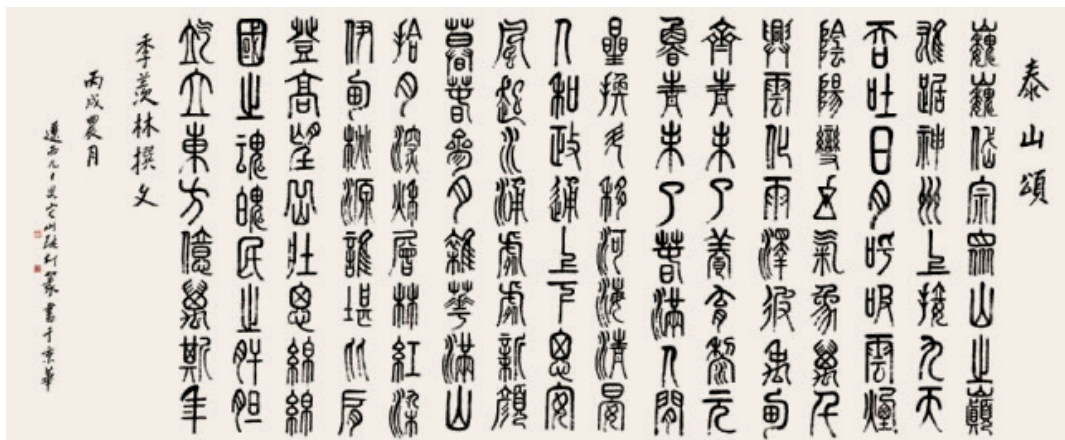 泰山頌
巍巍岱宗眾山之巔
雄踞神州上接九天
吞吐日月呼吸雲煙
陰陽變幻氣象萬千
興雲化雨澤被禹甸
齊青未了養育黎元
魯青未了春滿人間
星換斗移河海清晏
人和政通上下安
風起水涌處處新顏
暮春參月雜華滿山
拾月深秋層林紅染
伊甸桃源誰堪比肩
登高望岳壯思綿綿
國之魂魄民之肝胆
屹立東方億萬斯年
季羨林撰文
丙戌農月
篆書于京華